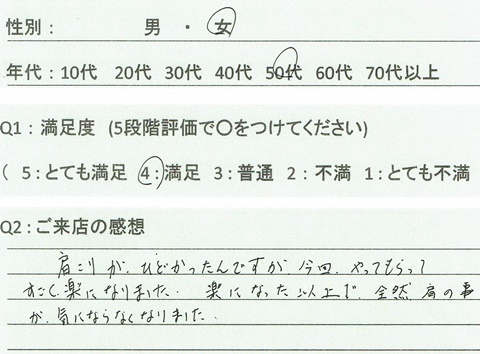 性別： 男 ・ 女
年代：10代 20代 30代 40代 50代 60代 70代以上
Q1：満足度 (5段階評価で〇をつけてください)
( 5：とても満足 4：満足 3：普通 2：不満 1：とても不満
Q2：ご来店の感想
肩こりが、ひどかったんですが、今回、やってもらって
すごく楽になりました. 楽になった以上で、全然肩の事
が、気にならなくなりました.